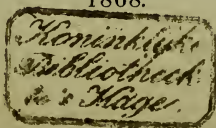 1808.
Koninklijke
Bibliotheek
te 's Hage.